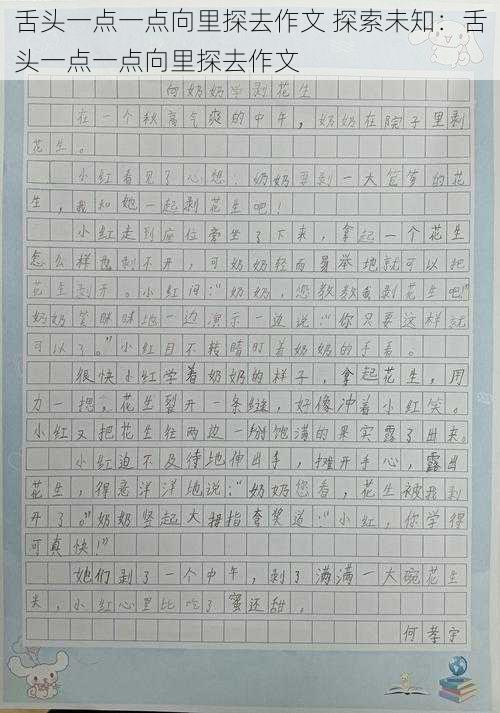 舌头一点一点向里探去作文 探索未知：舌
头一点一点向里探去作文
向奶奶学剥花生
在一个秋高气爽的中午，奶奶在院子里剥
花生。
小红看见了心想：奶奶要剥一大筐箩的花
生，我和她一起剥花生吧！
小红走到座位旁坐了下来，拿起一个花生
怎么样也剥不开，可奶奶轻而易举地就可以把
花生剥开。小红问：“奶奶，您教教我剥花生吧”
奶奶笑眯眯地一边演示一边说：“你只要这样就
可以了。”小红目不转睛盯着奶奶的手看。
很快小红学着奶奶的样子，拿起花生，用
力一捏，花生裂开一条缝，好像冲着小红笑。
小红又把花生往两边一掰饱满的果实露了出来。
小红迫不及待地伸出手，摊开手心，露出
花生，得意洋洋地说：“奶奶您看，花生被我剥
开了。”奶奶竖起大拇指夸奖道：“小红，你学得
可真快！”
她们剥了一个中午，剥了满满一大碗花生
米，小红心里比吃了蜜还甜，
何孝宇